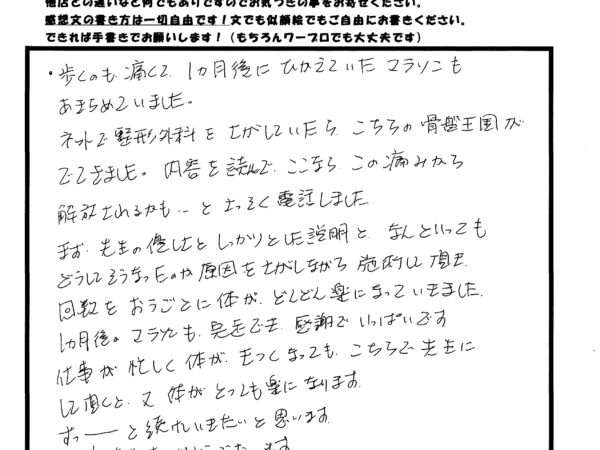 他店との違いなど何でもありますのでお気づきの事をお寄せください。
感想文の書き方は一切自由です！文でも似顔絵でもご自由にお書きください。
できれば手書きでお願いします！（もちろんワープロでも大丈夫です）
・歩くのも痛くて、1カ月後にひかえていたマラソンも
あきらめていました。
ネットで整形外科をさがしていたら、こちらの骨盤王国が
でてきました。内容を読んで、ここなら、この痛みから
解放されるかも…とさっそく電話しました
まず、先生の優しさと しっかりとした説明と なんといっても
どうしてそうなったのか原因をさがしながら施術して頂き、
回数をおうごとに体が、どんどん楽になっていきました。
1カ月後のマラソンも、完走でき、感謝でいっぱいです
仕事が忙しく体が、きつくなっても、こちらで先生に
して頂くと、又 体がとっても楽になります。
ずっーーと続けいきたいと思います。